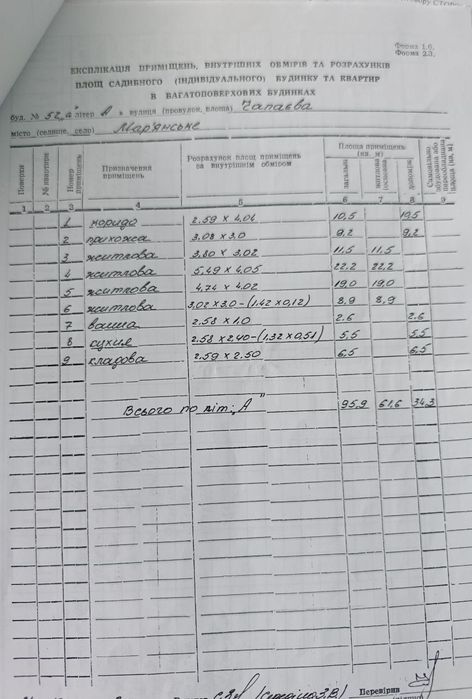 Форма 1.6.
Форма 2.3.
ЕКСПЛІКАЦІЯ ПРИМІЩЕНЬ, ВНУТРІШНІХ ОБМІРІВ ТА РОЗРАХУНКІВ
ПЛОЩ САДИБНОГО (ІНДИВІДУАЛЬНОГО) БУДИНКУ ТА КВАРТИР
В БАГАТОПОВЕРХОВИХ БУДИНКАХ
буд. № 52 "а" літер А в вулиця (провулок, площа) Чапаєва
місто (селище, село) Мар'янське
Поверхи № квартири Номер приміщень Призначення приміщень Розрахунок площ приміщень за внутрішнім обміром Площа приміщень (кв. м) загальна житлова (основна) допоміжн.
1 2 3 4 5 6 7 8 9
1 коридо 2.59 × 4.04 10,5 10,5
2 прихожа 3,08 × 3,0 9,2 9,2
3 житлова 3,80 × 3,02 11,5 11,5
4 житлова 5,49 × 4,05 22,2 22,2
5 житлова 4,74 × 4,02 19,0 19,0
6 житлова 3,02 × 3,0 – (1,42 × 0,12) 8,9 8,9
7 ванна 2.58 × 1,0 2.6 2.6
8 кухня 2.58 × 2,40 – (1,32 × 0,51) 5,5 5,5
9 кладова 2.59 × 2.50 6,5 6,5
Всього по літ. „А" 95,9 61,6 34,3
Перевірив